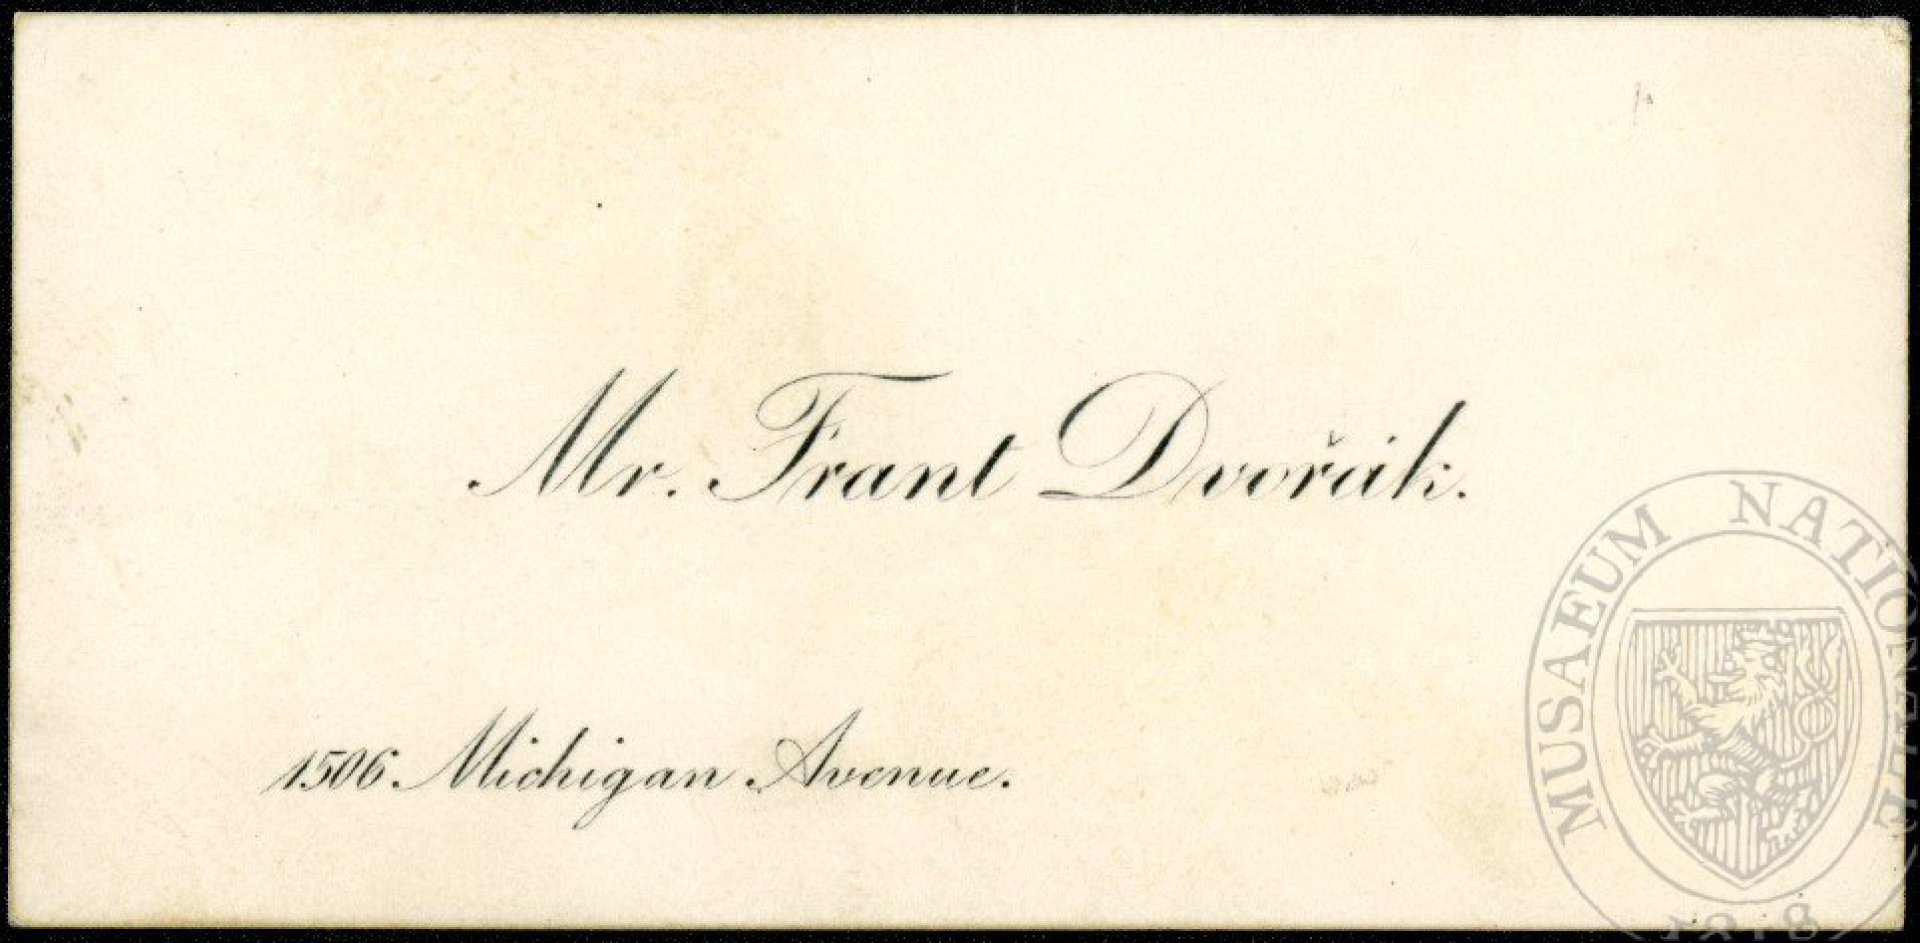 Mr. Frant Dvořák.
1506 Michigan Avenue.
MUSAEUM NATIONALE
1818